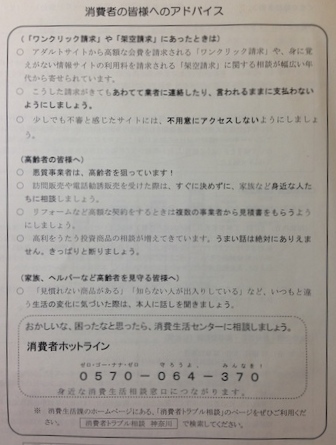 消費者の皆様へのアドバイス
(「ワンクリック請求」や「架空請求」にあったときは)
○ アダルトサイトから高額な会費を請求される「ワンクリック請求」や、身に覚
えがない情報サイトの利用料を請求される「架空請求」に関する相談が幅広い年
代から寄せられています。
○ こうした請求がきてもあわてて業者に連絡したり、言われるままに支払わない
ようにしましょう。
○ 少しでも不審と感じたサイトには、不用意にアクセスしないようにしましょ
う。
(高齢者の皆様へ)
○ 悪質事業者は、高齢者を狙っています!
○ 訪問販売や電話勧誘販売を受けた際は、すぐに決めずに、家族など身近な人た
ちに相談しましょう。
○ リフォームなど高額な契約をするときは複数の事業者から見積書をもらうよう
にしましょう。
○ 高利をうたう投資商品の相談が増えてきています。うまい話は絶対にありえま
せん、きっぱりと断りましょう。
(家族、ヘルパーなど高齢者を見守る皆様へ)
○ 「見慣れない商品がある」「知らない人が出入りしている」など、いつもと違
う生活の変化に気づいた際は、本人に話しを聞きましょう。
おかしいな、困ったなと思ったら、消費生活センターに相談しましょう。
消費者ホットライン
ゼロ・ゴー・ナナ・ゼロ 守ろうよ、 みんなを!
0570-064-370
身近な消費生活相談窓口につながります。
※ 消費生活課のホームページにある、「消費者トラブル相談」のページをぜひご利用くださ
い。 消費者トラブル相談 神奈川 で検索してください。